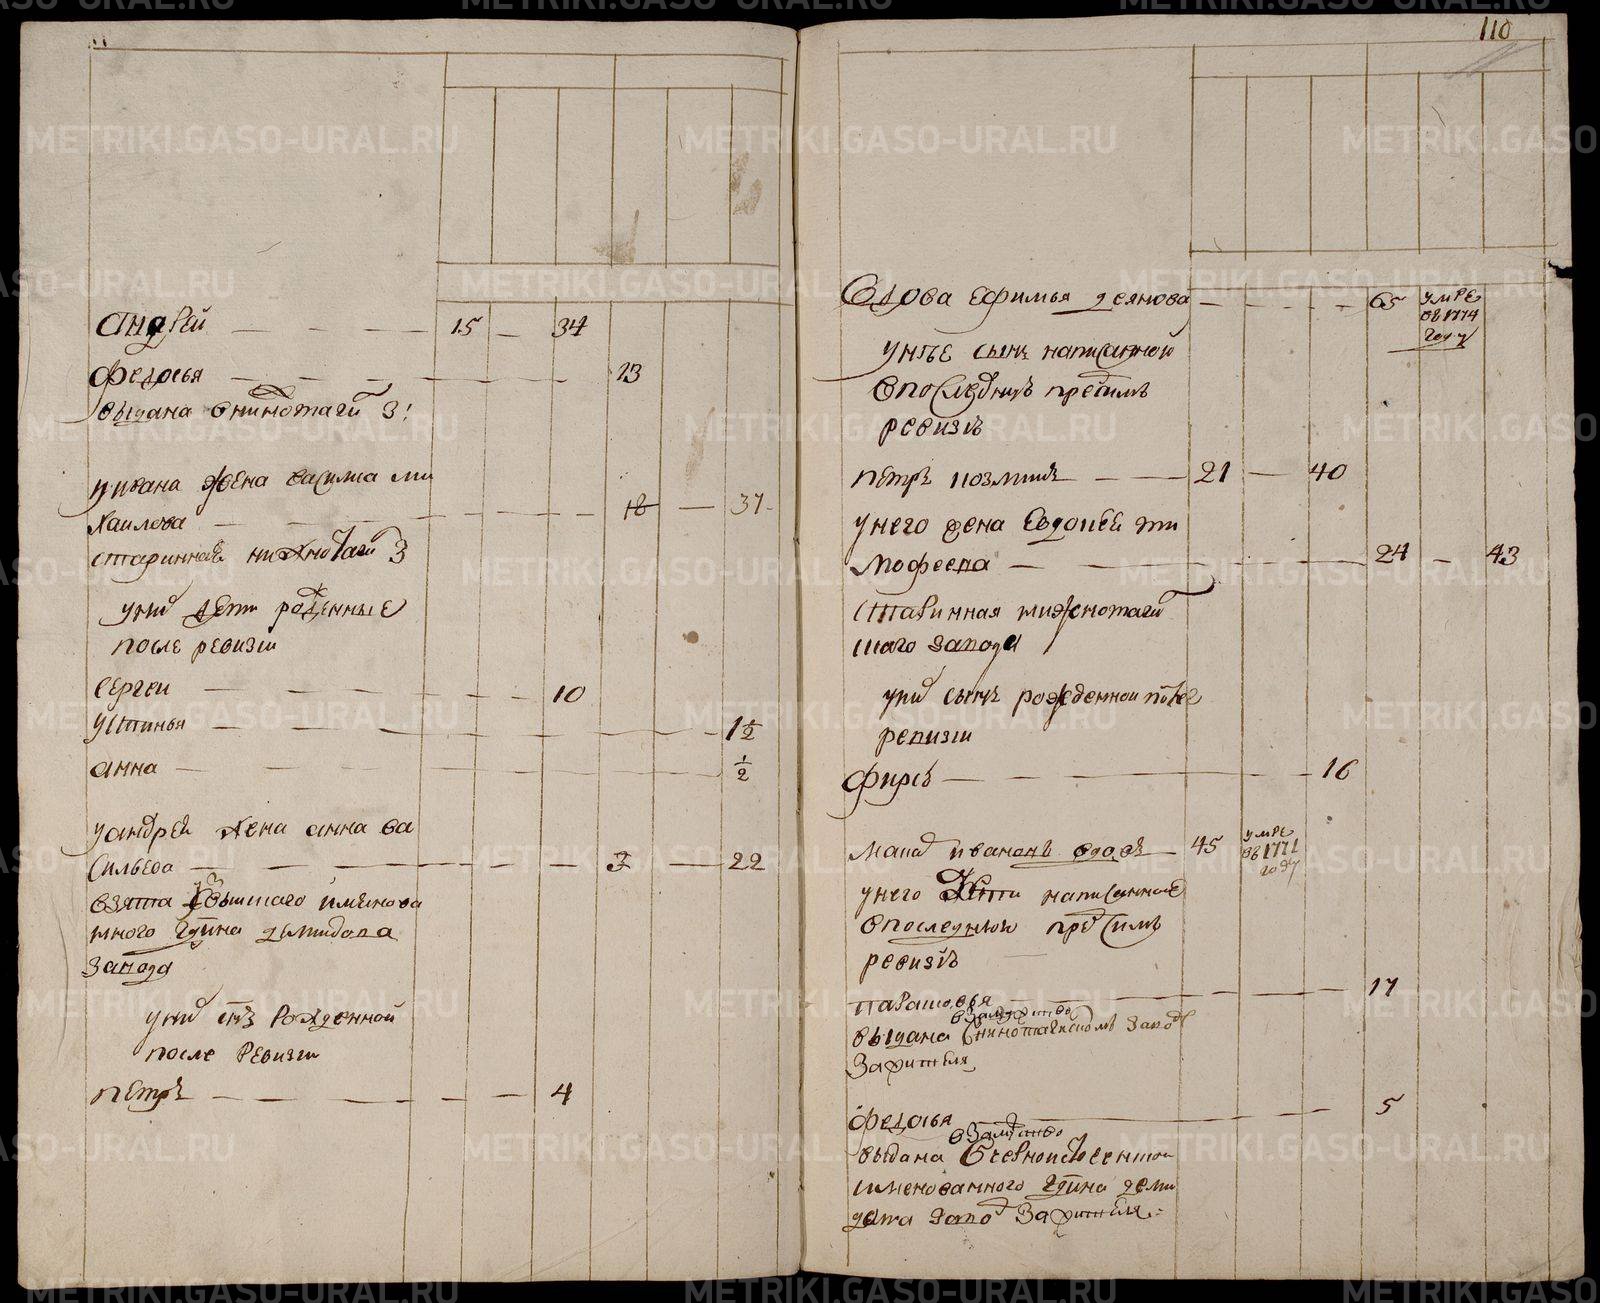 110
Андрей 15 34
Федосья 13
выдана в нижнотагил з:
у ивана жена василиса ми
хаилова 18 37
старинная нижнотагил з
у них дети рожденные
после ревизии
сергеи 10
устинья 1 1/2
анна 1/2
у андрея жена анна ва
сильева 3 22
взята вышшаго имянова
ного гдина демидова
завода
у них снъ рожденной
после ревизии
петръ 4
Вдова ефимья деянова 65 умре
въ 1774
году
у нее сынъ написанной
в последнюю пред симъ
ревизiю
петръ 21 40
у него жена Евдокея ти
мофеева 24 43
старинная нижнотагил
скаго завода
у них сынъ рожденной после
ревизии
фирсъ 16
ивановъ вдовъ 45 умре
въ 1771
году
у него дети написанные
в последнюю пред симъ
ревизiю
парасковья 17
в замужство
выдана в нижнотагилскомъ заводе
за жителя
федосья 5
в замужство
выдана
имянованного гдина деми
дова завод за жителя
METRIKI.GASO-URAL.RU